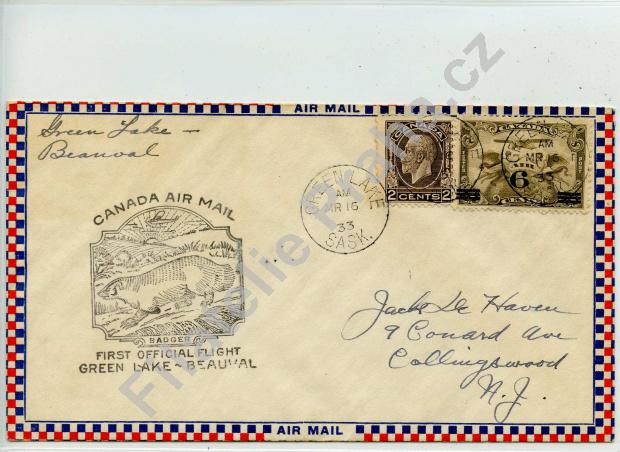 AIR MAIL
Green Lake –
Beauval
CANADA AIR MAIL
BADGER
FIRST OFFICIAL FLIGHT
GREEN LAKE ~ BEAUVAL
GREEN LAKE
AM
MR 16
33
SASK.
CANADA
2 CENTS 2
CANADA
AIR
6
AM
MR
33
Jack De Haven
9 Conard Ave
Collingswood
N.J.
AIR MAIL
Filatelie Praha.cz